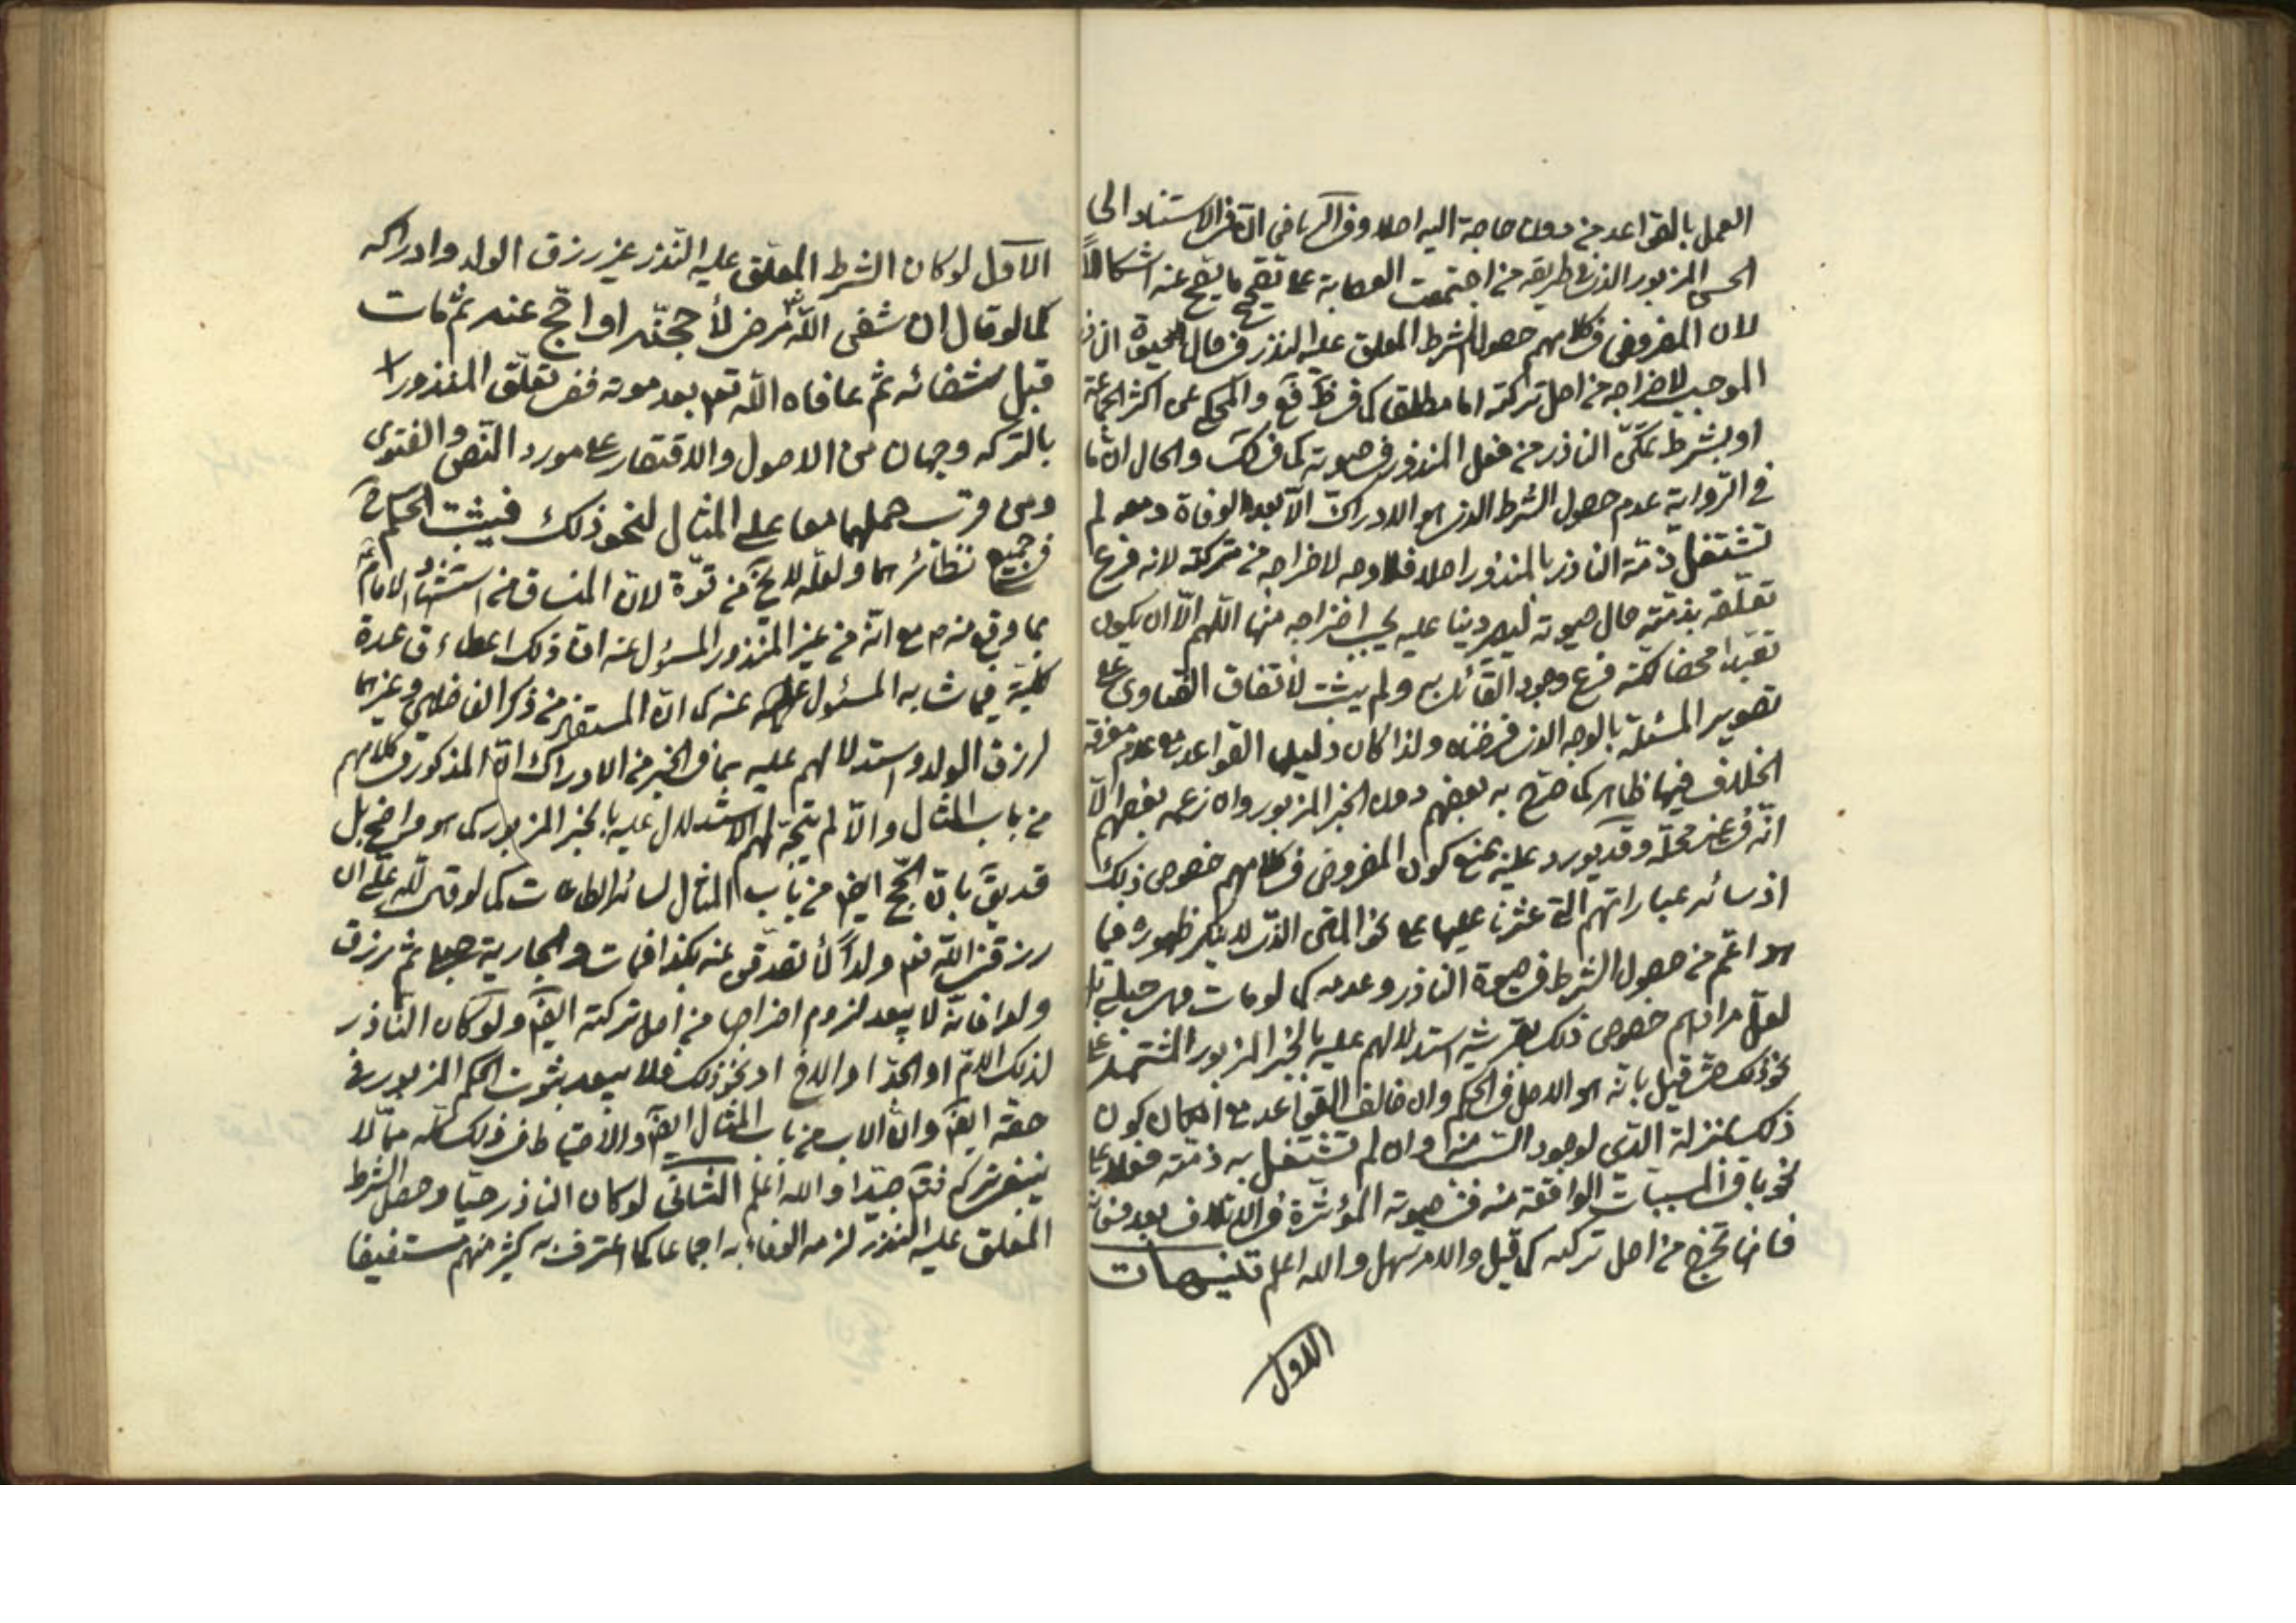 العمل بالقواعد من دون حاجة اليه اصلا وفي الرياض ان في الاستناد الى
الحسن المزبور الذي في طريقه من اجتمعت العصابة على تصحيح ما يصح عنه اشكالاً
لان المفروض في كلامهم حصول الشرط المعلق عليه النذر في حال الحيوة
الموجب لاخراجه من اصل تركته اما مطلقا كما في والمحكى عن اكثر الجماعة
او بشرط تمكن الناذر من فعل المنذور في حيوته كما في والحال ان ما
في الرواية عدم حصول الشرط الذي هو الادراك الا بعد الوفاة ومعه لم
تشتغل ذمة الناذر بالمنذور اصلا فلا وجه لاخراجه من تركته لانه فرع
تعلقه بذمته حال حيوته ليصير دينا عليه يجب اخراجه منها اللهم الا ان يكون
تعبدا محضا لكنه فرع وجود القائل به ولم يثبت لاتفاق الفتاوى على
تصوير المسئلة بالوجه الذي فرضناه ولذا كان دليلها القواعد مع عدم معرفة
الخلاف فيها ظاهر كما صرح به بعضهم دون الخبر المزبور وان زعمه بعضهم الا
انه في غير محله وقد يورد عليه بمنع كون المفروض في كلامهم خصوص ذلك
اذ سائر عباراتهم التي عثرنا عليها على نحو المتن الذي لا ينكر ظهوره فيما
هو اعم من حصول الشرط في حيوة الناذر وعدمه كما لو مات وهي حبلى بل
لعل مرادهم خصوص ذلك بقرينة استدلالهم عليه بالخبر المزبور المشتمل على
نحو ذلك حتى قيل بانه هو الاصل في الحكم وان خالف القواعد مع امكان كون
ذلك بمنزلة الدين لوجود السبب منه وان لم تشتغل به ذمته فعلا على
نحو باقي المسببات الواقعة منه في حيوته المؤثرة في الاتلاف بعد وفاته
فانها تخرج من اصل تركته كما قيل والامر سهل والله اعلم تنبيهات
الاول
الاول لو كان الشرط المعلق عليه النذر غير رزق الولد وادراكه
كما لو قال ان شفى الله مرض لأحججنه او احج عنه ثم مات
قبل شفائه ثم عافاه الله تعم بعد موته ففي تعلق المنذور
بالتركة وجهان من الاصول والاقتصار على مورد النص والفتوى
ومن قرب حملهما معا على المثال لنحو ذلك فيثبت الحكم ح
في جميع نظائرهما ولعله لا يخ من قوة لان المنساق من استشهاد الامام
بما وقع منه ص مع انه من غير المنذور المسئول عنه افادة ذلك اعطاء قاعدة
كلية فيما شابه المسئول عنه كما ان المستفاد من ذكر الفاضلين وغيرهما
لرزق الولد واستدلالهم عليه بما في الخبر من الادراك ان المذكور في كلامهم
من باب المثال والا لم يتجه لهم الاستدلال عليه بالخبر المزبور كما هو واضح بل
قد يق بان الحج ايض من باب المثال لسائر الطاعات كما لو قال لله علي ان
رزقني الله تعم ولداً لأتصدقن عنه بكذا فمات والجارية حبلى ثم رزق
ولدا فانه لا يبعد لزوم اخراجها من اصل تركته ايض ولو كان الناذر
لذلك الام او الجد او الاخ او نحو ذلك فلا يبعد ثبوت الحكم المزبور في
حقه ايض وان الاب من باب المثال ايض والاحتياط في ذلك كله مما لا
ينبغي تركه فتم جيدا والله اعلم الثاني لو كان الناذر حيا وحصل الشرط
المعلق عليه النذر لزمه الوفاء به اجماعا كما اعترف به كثير منهم مستفيضا